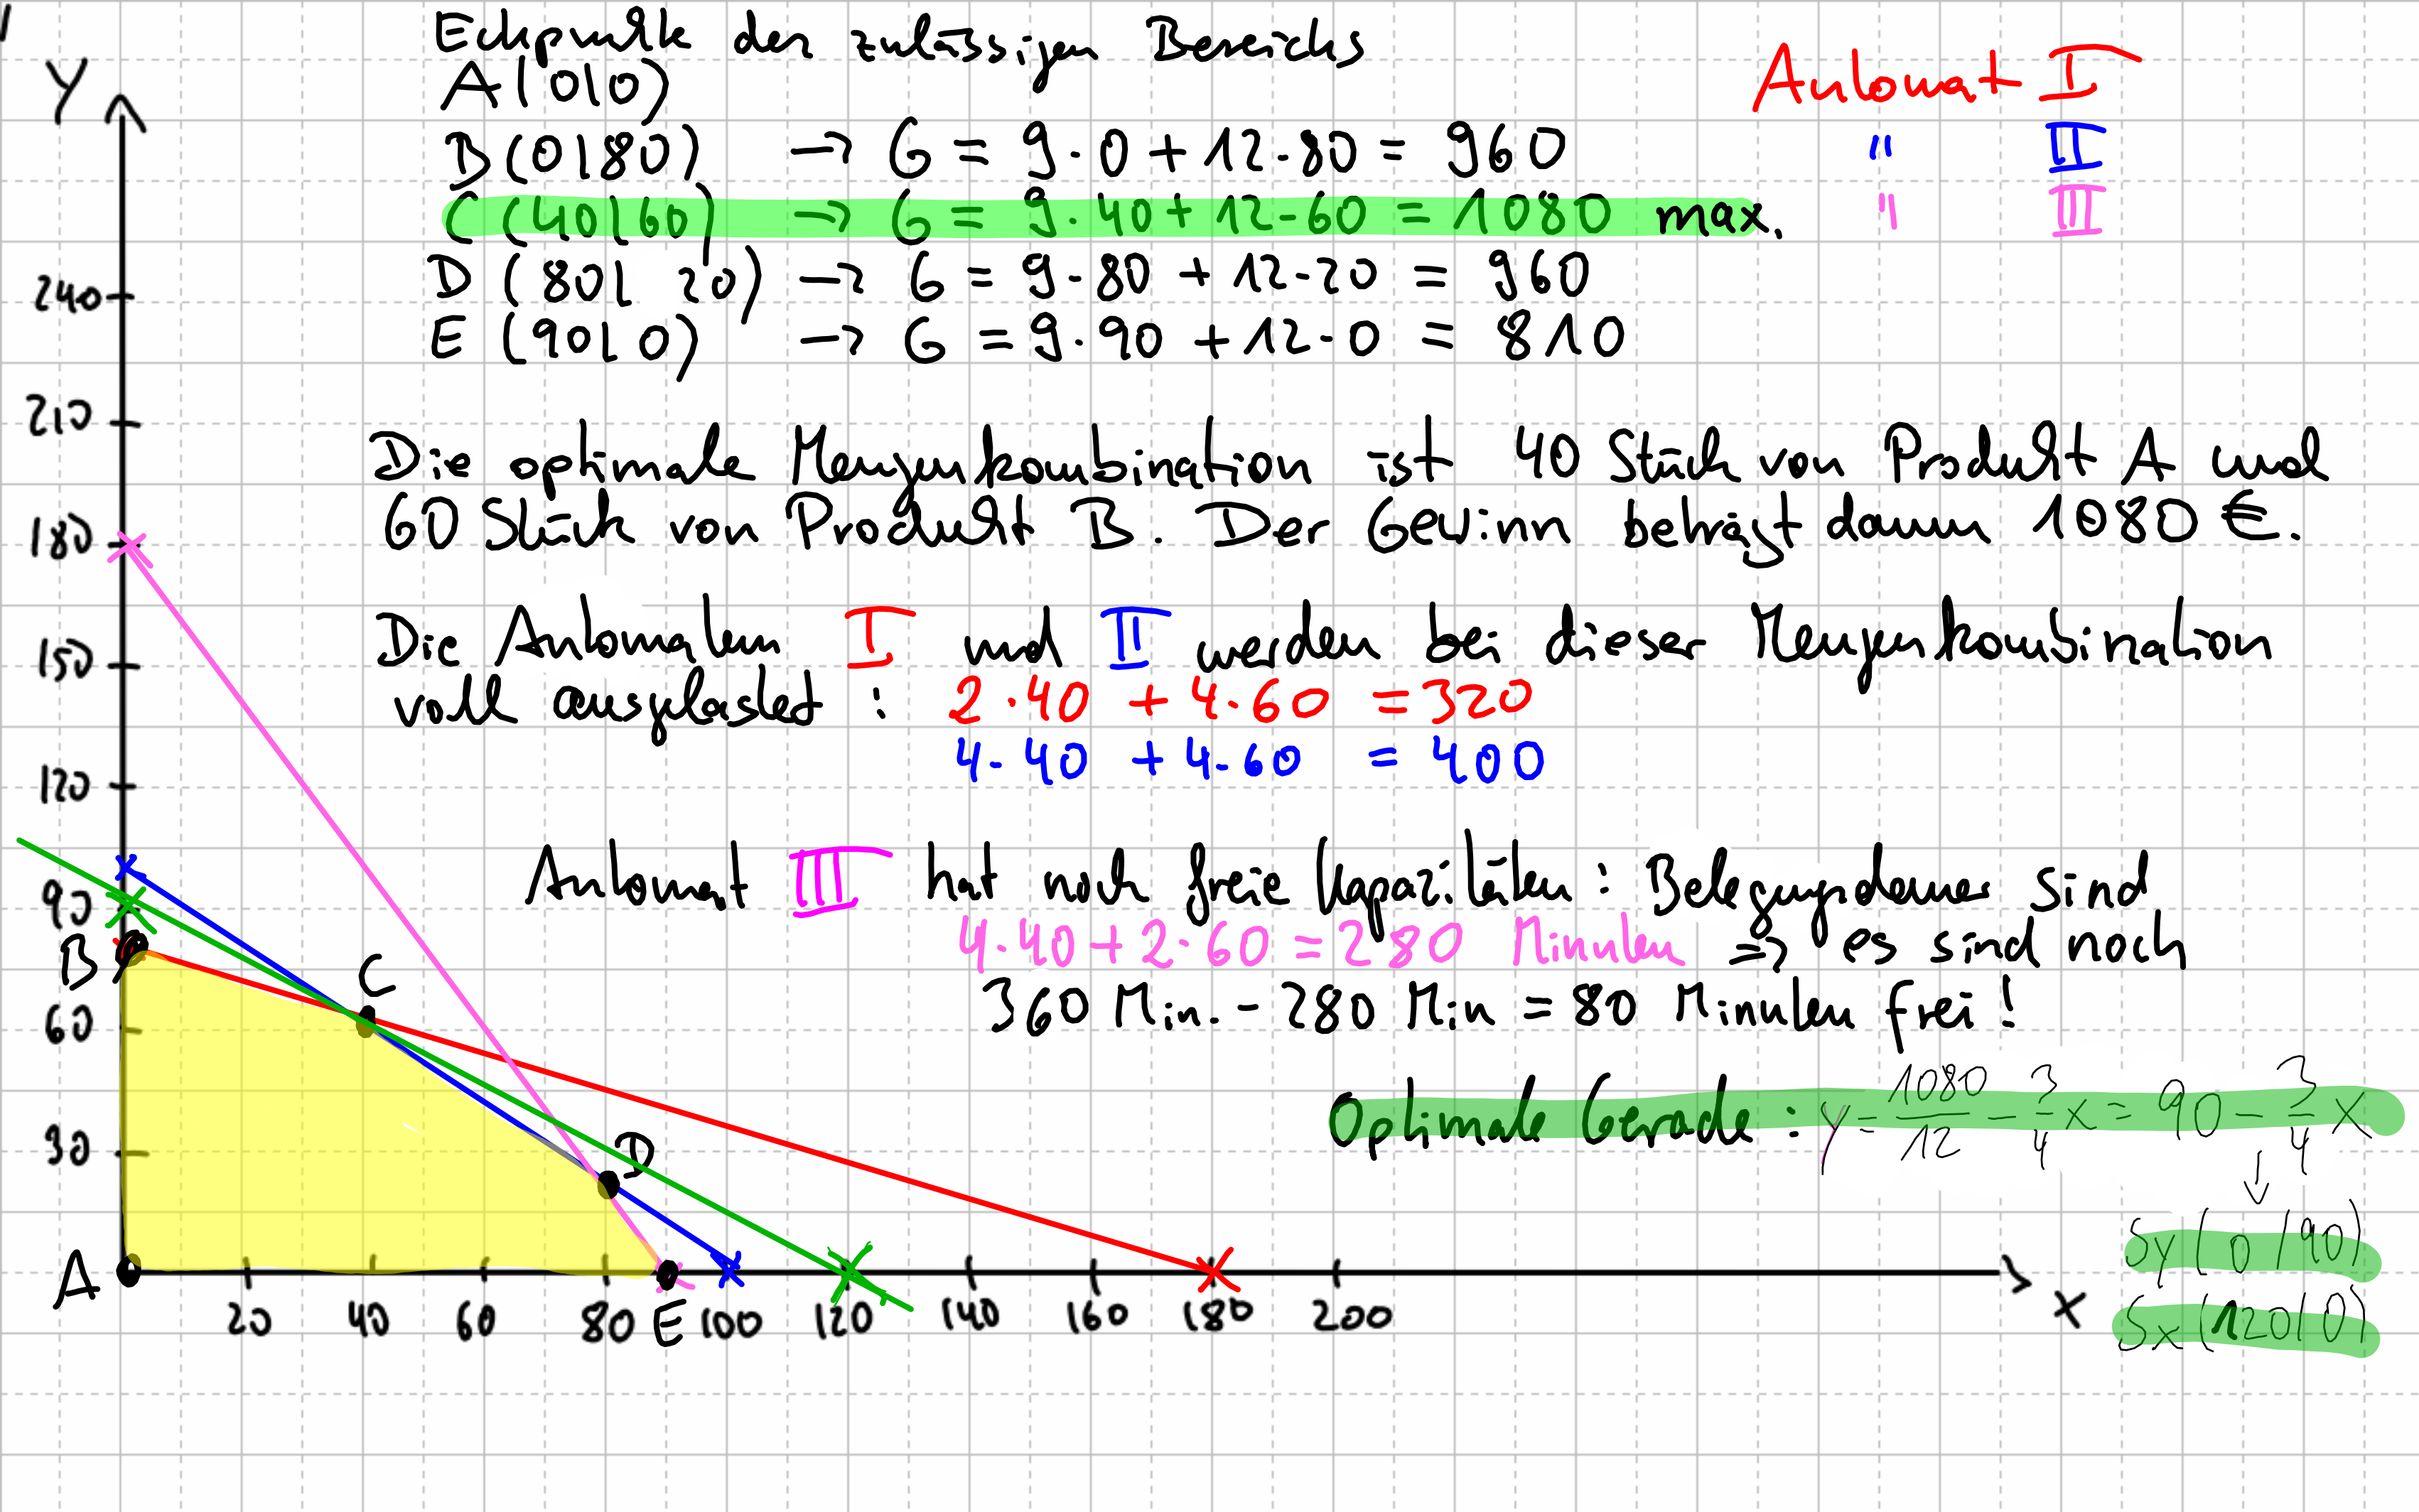 Eckpunkte des zulässigen Bereichs
A(0|0)
B(0|80) → G = 9·0 + 12·80 = 960
C(40|60) → G = 9·40 + 12·60 = 1080 max.
D(80|20) → G = 9·80 + 12·20 = 960
E(90|0) → G = 9·90 + 12·0 = 810
Automat I
" II
" III
Die optimale Mengenkombination ist 40 Stück von Produkt A und
60 Stück von Produkt B. Der Gewinn beträgt dann 1080 €.
Die Automaten I und II werden bei dieser Mengenkombination
voll ausgelastet: 2·40 + 4·60 = 320
4·40 + 4·60 = 400
Automat III hat noch freie Kapazitäten: Belegungsdauer sind
4·40 + 2·60 = 280 Minuten ⇒ es sind noch
360 Min. - 280 Min = 80 Minuten frei!
Optimale Gerade: y = 1080/12 - 3/4 x = 90 - 3/4 x
↓
Sy(0|90)
Sx(120|0)
Y
240
210
180
150
120
90
60
30
B
C
D
A
E
20 40 60 80 100 120 140 160 180 200
X